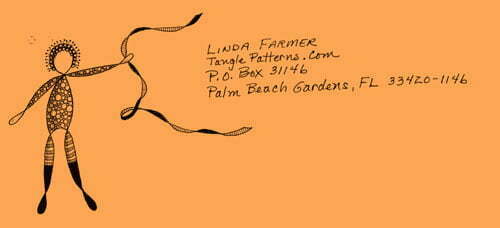 Linda Farmer
Tangle Patterns.com
P.O. Box 31146
Palm Beach Gardens, FL 33420-1146